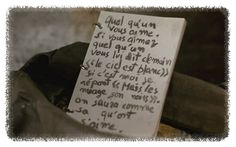 quel qu'un
vous aime.
si vous aimez
quel qu'un
vous lui dit demain
«le ciel est blanc»
si c'est moi je
répont «Mais les
nuage son noirs».
on saura comme
sa qu'ont
s'aime.